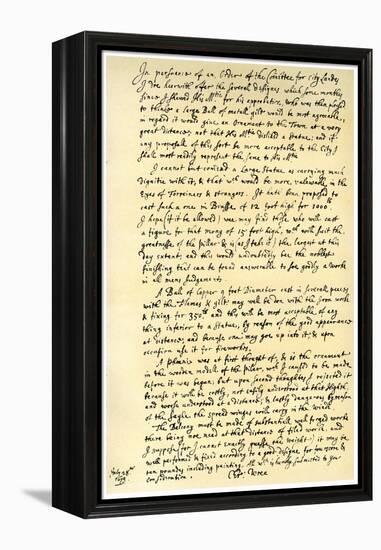 In persuance of an Order of the Comittee for City Landes
I doe heerwith offer the Severall designes which some monthes
since I shewed His Matie for his approbation, who was then pleased
to thinke a large Ball of metall gilt would be most agreeable,
in regard it would give an Ornament to the Town at a very
great distance; not that His Matie disliked a Statue; and if
any proposall of this sort be more acceptable to the City I
shall most readily represent the same to His Matie
I cannot but comend a Large Statue as carrying much
dignitie with it, & that wch would be more valewable in the
Eyes of Forreiners & strangers. It hath been proposed to
cast such a one in Brasse of 12 foot high for 1000lb
I hope (if it be allowed) wee may find those who will cast
a figure for that mony of 15 foot high, wch will suit the
greatnesse of the pillar & is (as I take it) the largest at this
day extant; and this would undoubtedly bee the noblest
finishing that can be found answerable to soe goodly a worke
in all mens Judgements
A Ball of Copper 9 foot Diameter cast in severall peeces
with the Flames & gilt; may well be don with the Iron worke
& fixing for 350lb and this will be most acceptable of any
thing inferior to a Statue, by reason of the good appearance
at distance, and because one may goe up into it; & upon
occasion use it for fireworks
A phœnix was at first thought of, & is the ornament
in the wooden modell of the pillar, wch I caused to be made
before it was begun; but upon second thoughtes I rejected it
because it will be costly, not easily understood at that Highth
and worse understood at a distance; & lastly dangerous by reason
of the sayle the spread winges will carry in the winde.
The Balcony must be made of substantiall well forged worke
there being noe need at that distance of filed worke, and
I suppose (for I cannot exactly the weight) it may be
well performed & fixed according to a good designe for fourscore &
ten poundes including painting. All wch is humbly submitted to your
consideration.
July 28th
1675
Chr: Wren